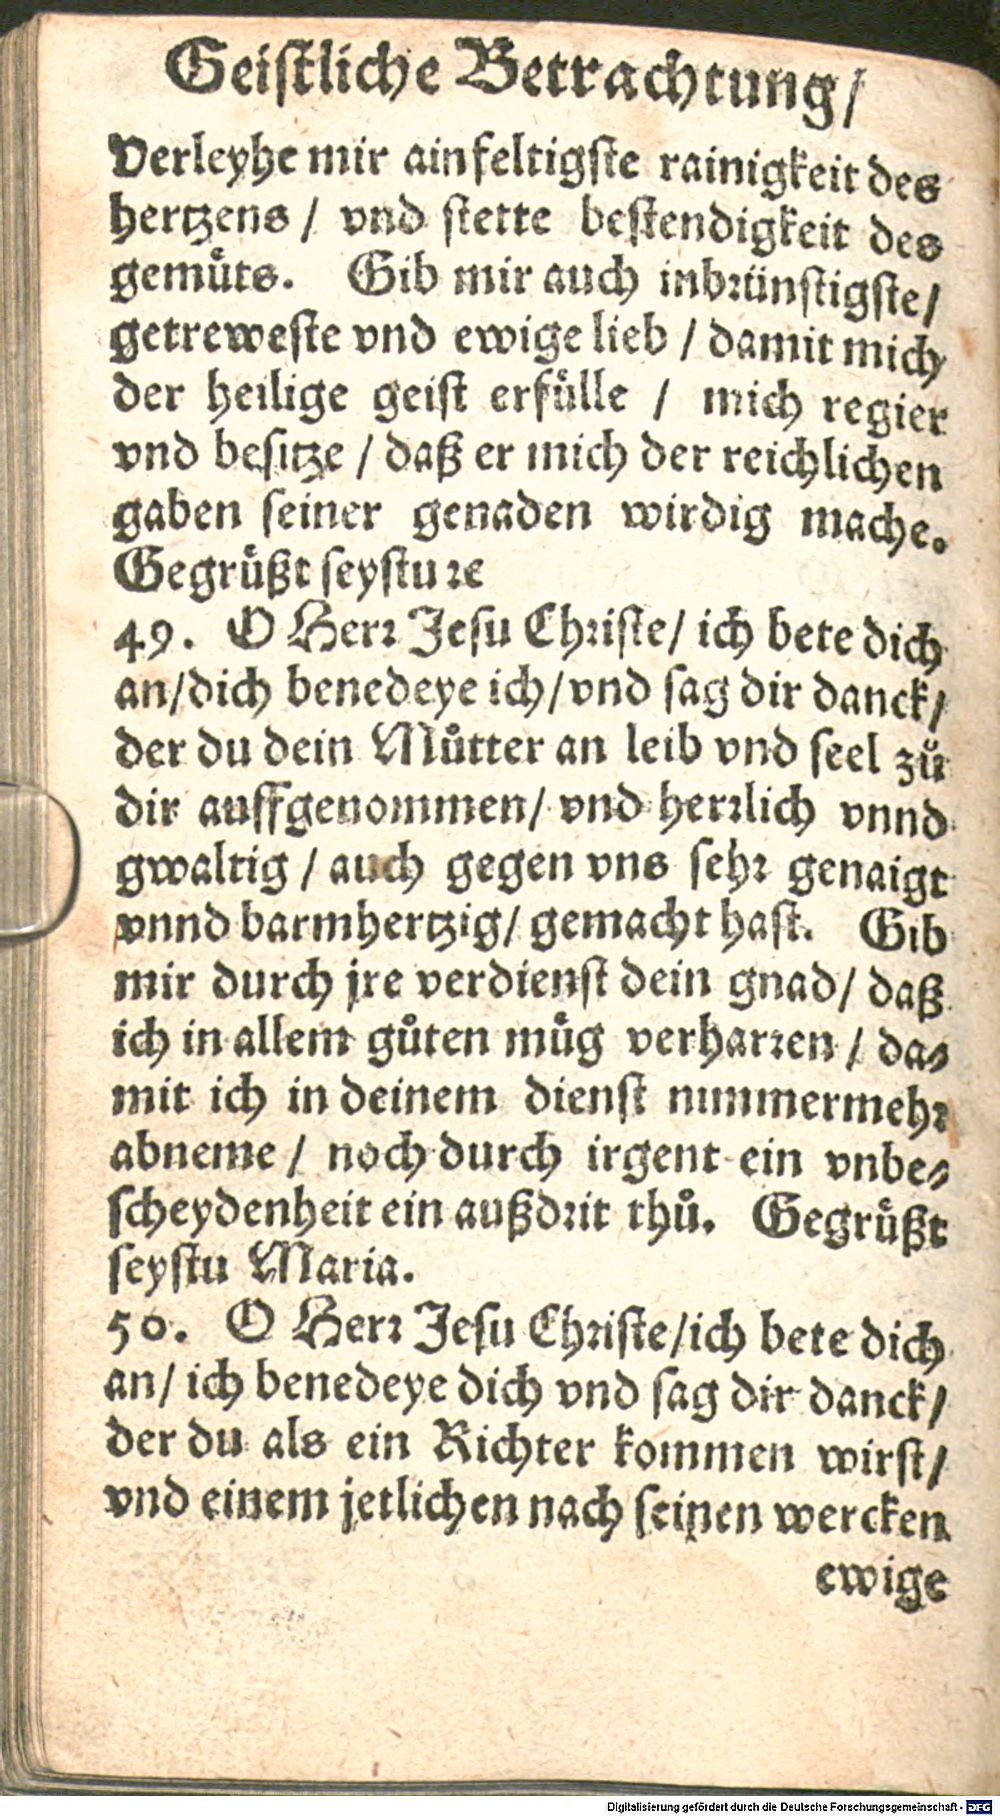 Geistliche Betrachtung/
Verleyhe mir ainfeltigste rainigkeit des
hertzens / vnd stette bestendigkeit des
gemuͤts. Gib mir auch inbrünstigste/
getreweste vnd ewige lieb / damit mich
der heilige geist erfülle / mich regier
vnd besitze / daß er mich der reichlichen
gaben seiner genaden wirdig mache.
Gegruͤßt seystu ꝛc
49. O Herr Jesu Christe/ ich bete dich
an/dich benedeye ich/vnd sag dir danck/
der du dein Muͦtter an leib vnd seel zuͦ
dir auffgenommen/ vnd herrlich vnnd
gwaltig / auch gegen vns sehr genaigt
vnnd barmhertzig/ gemacht hast. Gib
mir durch jre verdienst dein gnad/ daß
ich in allem guͦten muͤg verharren / da-
mit ich in deinem dienst nimmermehr
abneme / noch durch irgent ein vnbe-
scheydenheit ein außdrit thuͦ. Gegruͤßt
seystu Maria.
50. O Herr Jesu Christe/ich bete dich
an/ ich benedeye dich vnd sag dir danck/
der du als ein Richter kommen wirst/
vnd einem jetlichen nach seinen wercken
ewige
Digitalisierung gefördert durch die Deutsche Forschungsgemeinschaft - DFG